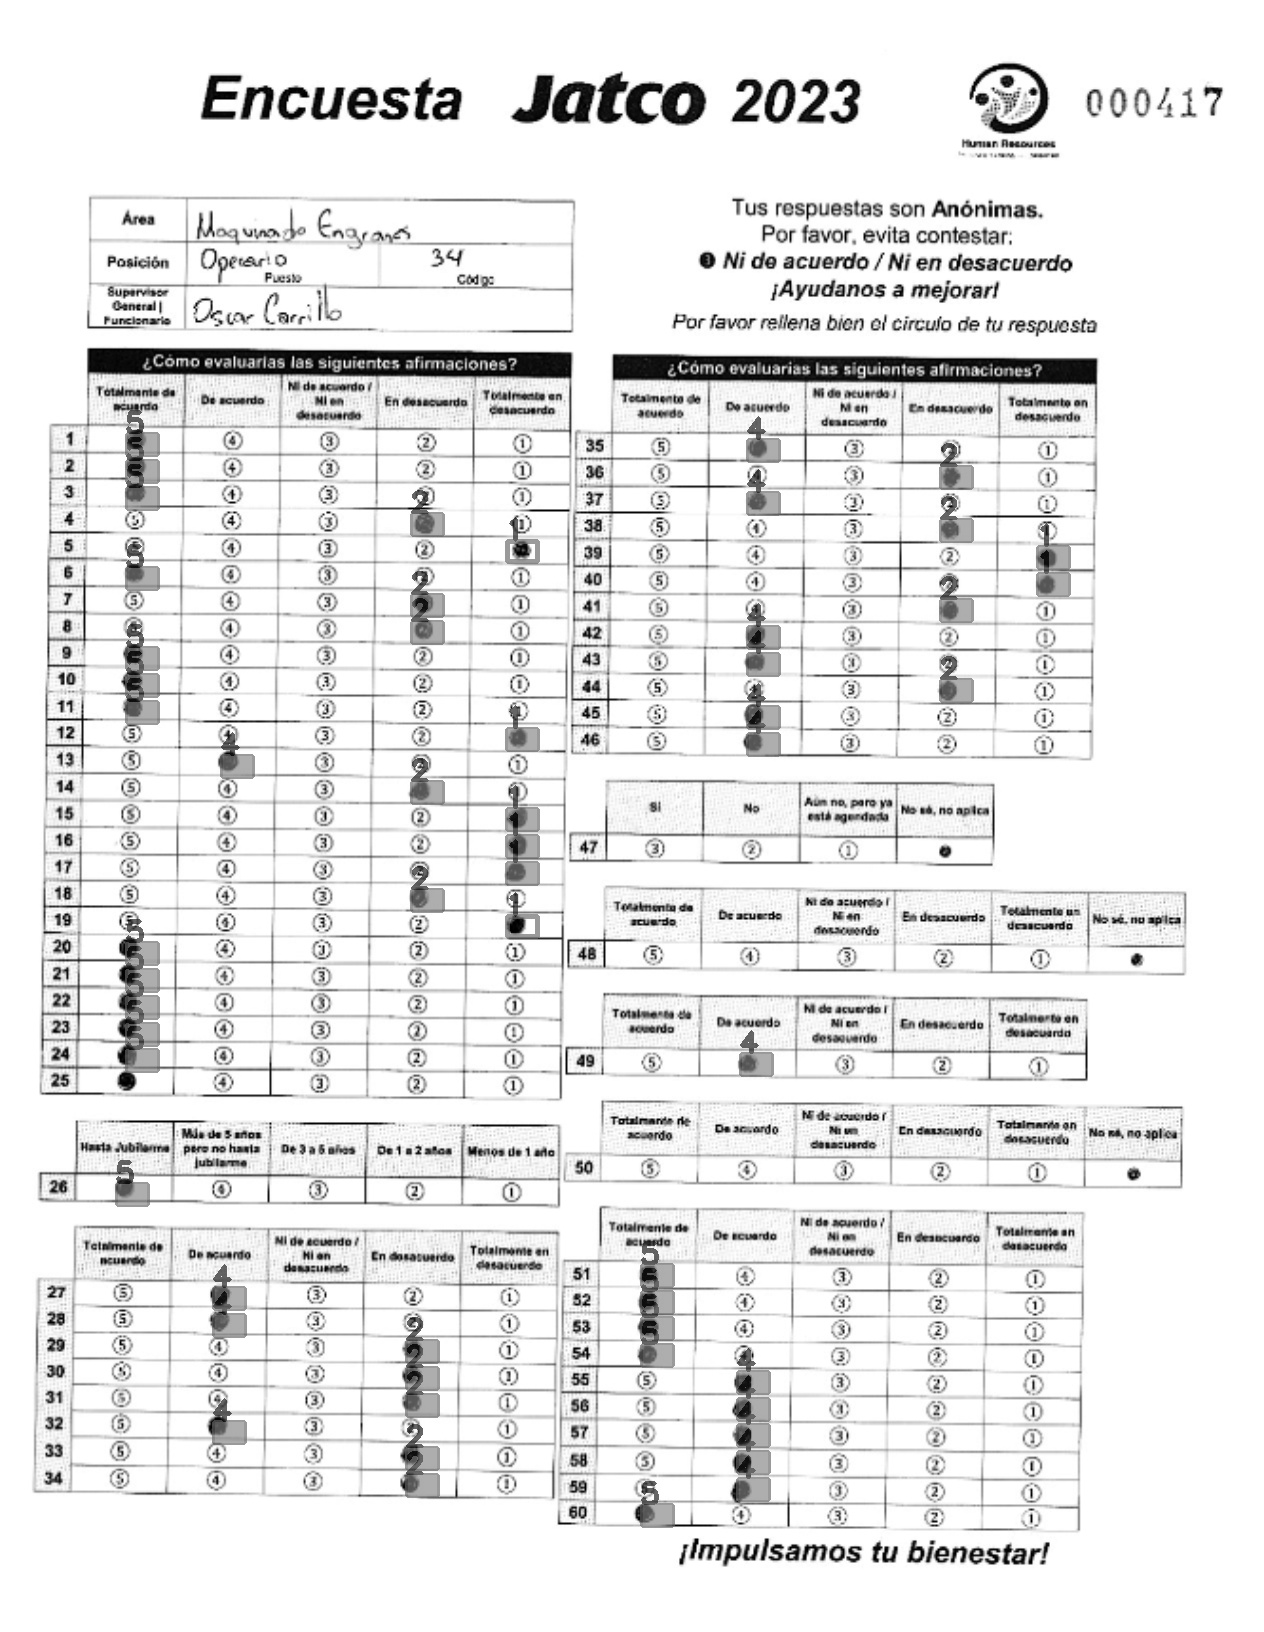 Encuesta Jatco 2023
Human Resources
000417
Área Maquinado Engranes
Posición Operario 34
Puesto Código
Supervisor General | Funcionario Oscar Carrillo
Tus respuestas son Anónimas.
Por favor, evita contestar:
❸ Ni de acuerdo / Ni en desacuerdo
¡Ayudanos a mejorar!
Por favor rellena bien el circulo de tu respuesta
¿Cómo evaluarias las siguientes afirmaciones?
Totalmente de acuerdo De acuerdo Ni de acuerdo / Ni en desacuerdo En desacuerdo Totalmente en desacuerdo
1 5 ④ ③ ② ①
2 5 ④ ③ ② ①
3 5 ④ ③ ②  ①
4 ⑤ ④ ③ 2 ①
5 ⑤ ④ ③ ② 1
6 5 ④ ③ ② ①
7 ⑤ ④ ③ 2 ①
8 ⑤ ④ ③ 2 ①
9 5 ④ ③ ② ①
10 5 ④ ③ ② ①
11 5 ④ ③ ② ①
12 ⑤ ④ ③ ② 1
13 ⑤ 4 ③ ② ①
14 ⑤ ④ ③ 2 ①
15 ⑤ ④ ③ ② 1
16 ⑤ ④ ③ ② 1
17 ⑤ ④ ③ ② 1
18 ⑤ ④ ③ 2 ①
19 ⑤ ④ ③ ② 1
20 5 ④ ③ ② ①
21 5 ④ ③ ② ①
22 5 ④ ③ ② ①
23 5 ④ ③ ② ①
24 5 ④ ③ ② ①
25 ④ ③ ② ①
Hasta Jubilarme Más de 5 años pero no hasta jubilarme De 3 a 5 años De 1 a 2 años Menos de 1 año
26 5 ④ ③ ② ①
Totalmente de acuerdo De acuerdo Ni de acuerdo / Ni en desacuerdo En desacuerdo Totalmente en desacuerdo
27 ⑤ 4 ③ ② ①
28 ⑤ 4 ③ ② ①
29 ⑤ ④ ③ 2 ①
30 ⑤ ④ ③ 2 ①
31 ⑤ ④ ③ 2 ①
32 ⑤ 4 ③ ② ①
33 ⑤ ④ ③ 2 ①
34 ⑤ ④ ③ 2 ①
¿Cómo evaluarias las siguientes afirmaciones?
Totalmente de acuerdo De acuerdo Ni de acuerdo / Ni en desacuerdo En desacuerdo Totalmente en desacuerdo
35 ⑤ 4 ③ ② ①
36 ⑤ ④ ③ 2 ①
37 ⑤ 4 ③ ② ①
38 ⑤ ④ ③ 2 ①
39 ⑤ ④ ③ ② 1
40 ⑤ ④ ③ ② 1
41 ⑤ ④ ③ 2 ①
42 ⑤ 4 ③ ② ①
43 ⑤ 4 ③ ② ①
44 ⑤ ④ ③ 2 ①
45 ⑤ 4 ③ ② ①
46 ⑤ 4 ③ ② ①
Si No Aún no, pero ya está agendada No sé, no aplica
47 ③ ② ①
Totalmente de acuerdo De acuerdo Ni de acuerdo / Ni en desacuerdo En desacuerdo Totalmente en desacuerdo No sé, no aplica
48 ⑤ ④ ③ ② ①
Totalmente de acuerdo De acuerdo Ni de acuerdo / Ni en desacuerdo En desacuerdo Totalmente en desacuerdo
49 ⑤ 4 ③ ② ①
Totalmente de acuerdo De acuerdo Ni de acuerdo / Ni en desacuerdo En desacuerdo Totalmente en desacuerdo No sé, no aplica
50 ⑤ ④ ③ ② ①
Totalmente de acuerdo De acuerdo Ni de acuerdo / Ni en desacuerdo En desacuerdo Totalmente en desacuerdo
51 5 ④ ③ ② ①
52 5 ④ ③ ② ①
53 5 ④ ③ ② ①
54 5 ④ ③ ② ①
55 ⑤ 4 ③ ② ①
56 ⑤ 4 ③ ② ①
57 ⑤ 4 ③ ② ①
58 ⑤ 4 ③ ② ①
59 ⑤ 4 ③ ② ①
60 5 ④ ③ ② ①
¡Impulsamos tu bienestar!